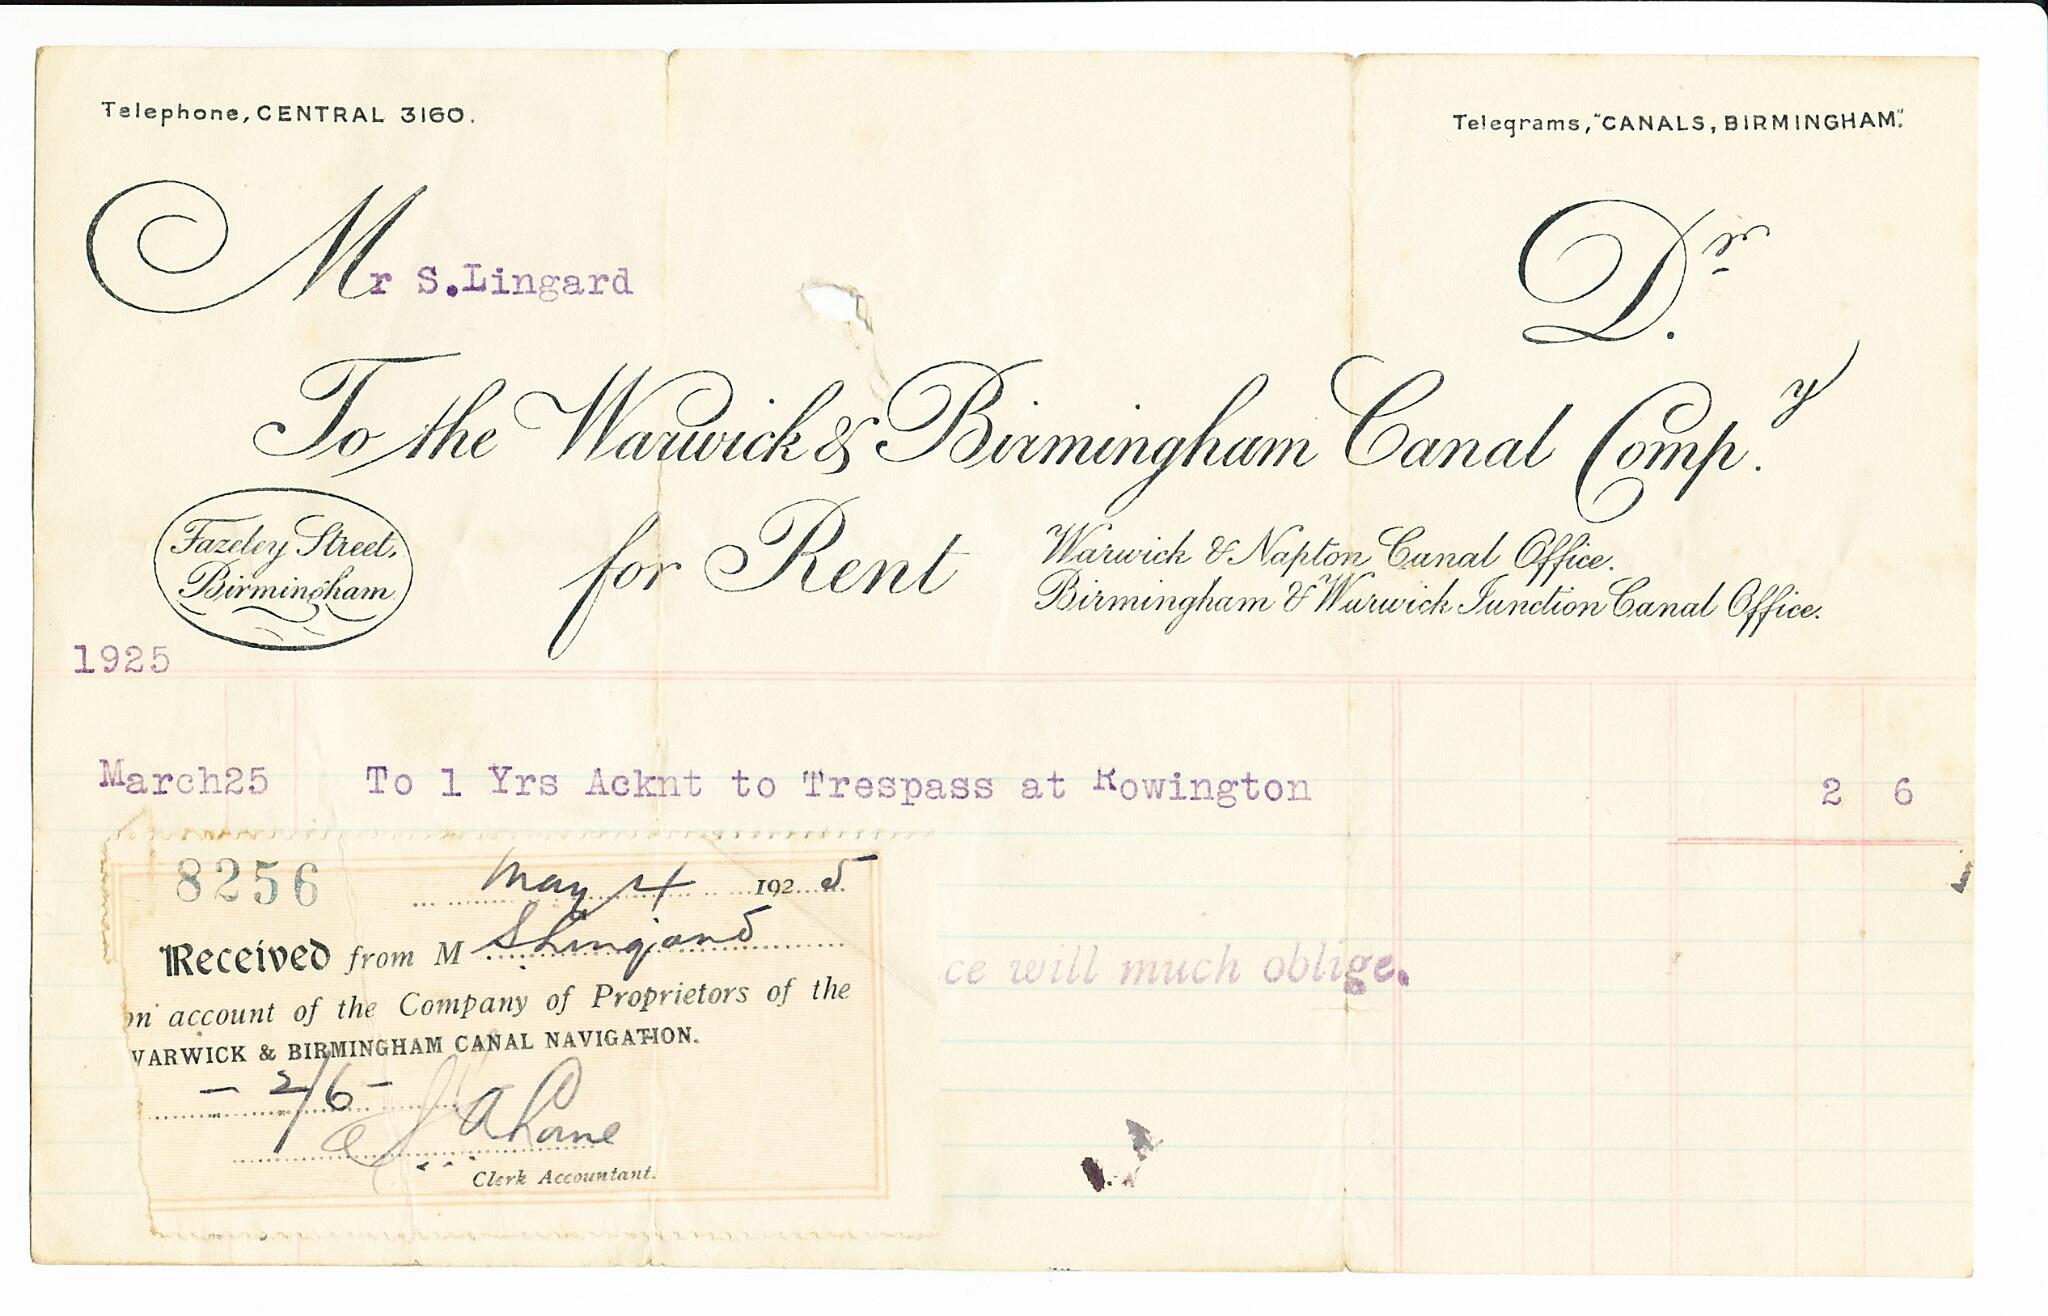 Telephone, CENTRAL 3160.
Telegrams, "CANALS, BIRMINGHAM."
Mr S.Lingard
Dr.
To the Warwick & Birmingham Canal Compy.
Fazeley Street,
Birmingham
for Rent
Warwick & Napton Canal Office.
Birmingham & Warwick Junction Canal Office.
1925
March25 To 1 Yrs Acknt to Trespass at Rowington 2 6
8256
May 4 1925
Received from M S Lingard
on account of the Company of Proprietors of the
WARWICK & BIRMINGHAM CANAL NAVIGATION.
- 2/6 -
Clerk Accountant.
ce will much oblige.